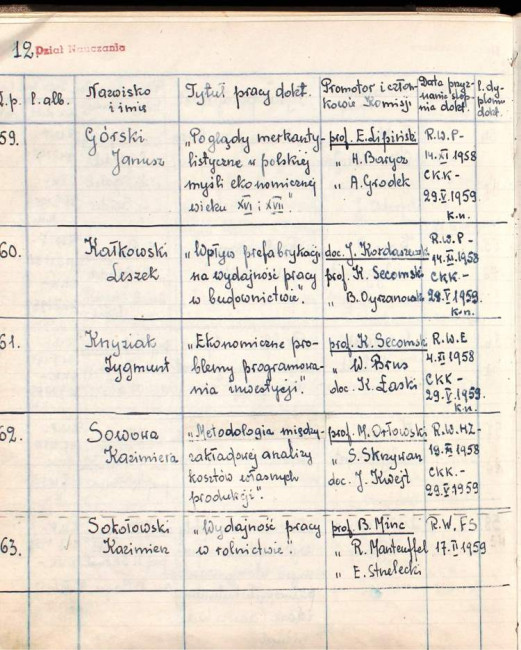 12 Dział Nauczania
L.p. l.alb. Nazwisko i imię Tytuł pracy dokt. Promotor i członkowie Komisji Data przyznania stopnia dokt. l. dyplomu dokt.
59. Górski "Poglądy merkanty- prof. E. Lipiński R.W.P-
Janusz listyczne w polskiej " H. Barycz 14.XI 1958
myśli ekonomicznej " A. Grodek CKK-
wieku XVI i XVII". 29.V.1959.
k.n.
60. Kałkowski "Wpływ prefabrykacji doc. J. Kordaszewski R.W.P-
Leszek na wydajność pracy prof. K. Secomski 14.XI.1958
w budownictwie". " B. Oyrzanowski CKK-
28.V.1959.
k.n.
61. Knyziak "Ekonomiczne pro- prof. K. Secomski R.W.E
Zygmunt blemy programowa- " W. Brus 4.XI 1958
nia inwestycji." doc. K. Łaski CKK-
29.V.1959.
k.n.
62. Sowowa "Metodologia między- prof. M. Orłowski R.W.HZ-
Kazimiera zakładowej analizy " S. Skrzywan 1958
kosztów własnych doc. J. Kwejt CKK-
produkcji". 29.V.1959
63. Sokołowski "Wydajność pracy prof. B. Minc R.W.FS
Kazimierz w rolnictwie". " R. Manteuffel 17.II 1959
" E. Strzelecki